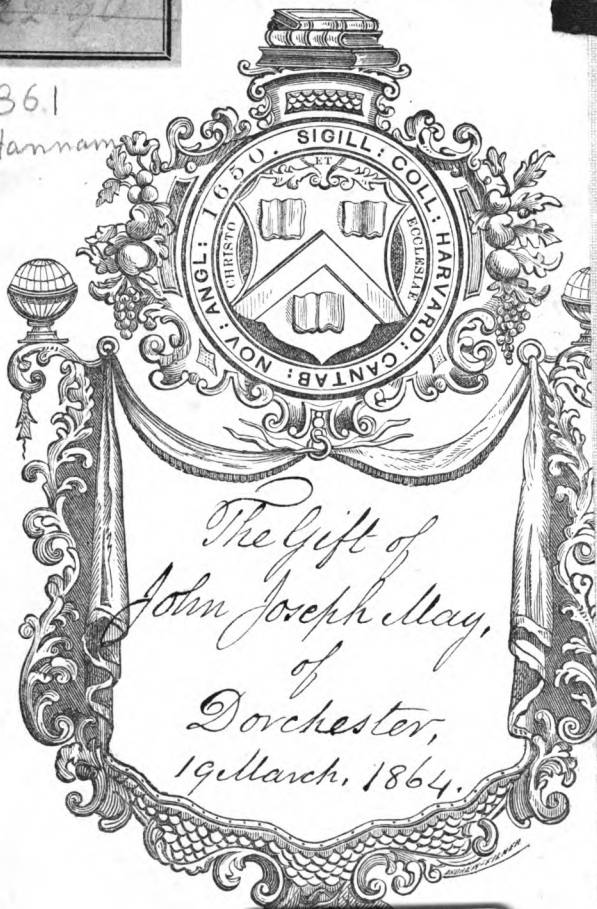 361
Hannam
SIGILL: COLL: HARVARD: CANTAB: NOV: ANGL: 1650.
CHRISTO ET ECCLESIAE
The Gift of
John Joseph May,
of
Dorchester,
19 March. 1864.